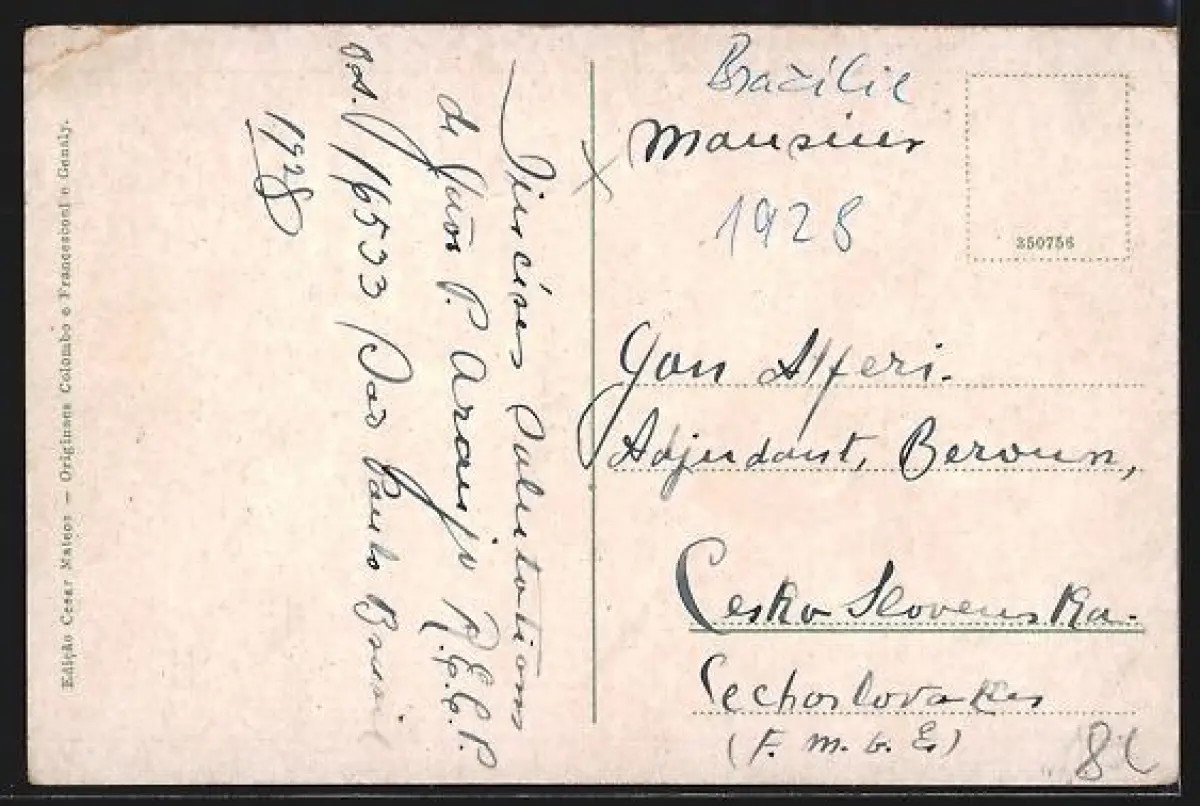 Edição Cesar Mateos — Originaes Colombo e Francesconi e Genaly.
Sincéres Salutations
de Juños P. Araujo R.E.C.P.
os. 16533 São Paulo Brasil
1928
Brazílie
Monsieur
1928
350756
Jan Alferi.
Adjudant, Beroun,
Cesko Slovenska.
Cechoslovakes
(F. M. b. E)